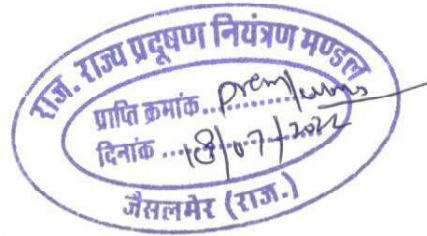 राज. राज्य प्रदूषण नियंत्रण मण्डल
प्राप्ति क्रमांक..
दिनांक ....18/07/2022
जैसलमेर (राज.)